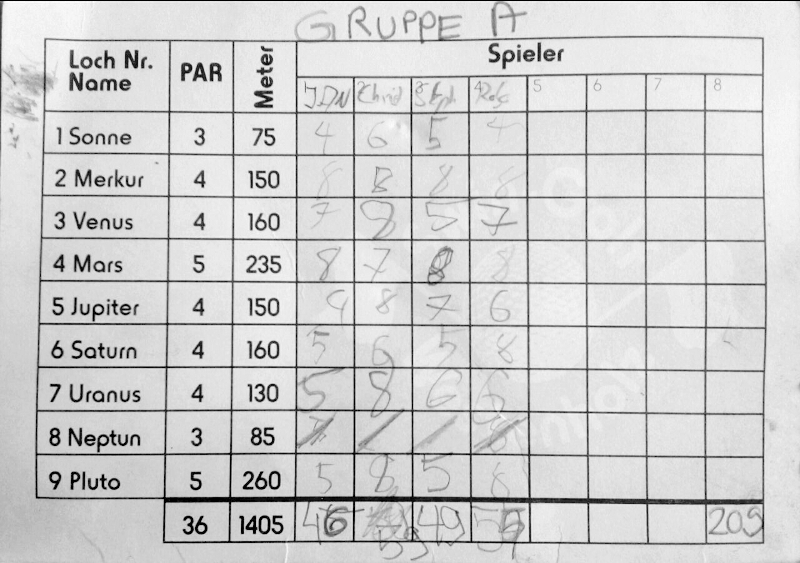 GRUPPE A
Loch Nr. Name PAR Meter Spieler
1 JAN 2 3 4 5 6 7 8
1 Sonne 3 75 4 6 5 4
2 Merkur 4 150 8 8 8 8
3 Venus 4 160 7 8 5 7
4 Mars 5 235 8 7 8 8
5 Jupiter 4 150 4 8 7 6
6 Saturn 4 160 5 6 5 8
7 Uranus 4 130 5 8 6 6
8 Neptun 3 85
9 Pluto 5 260 5 8 5 8
36 1405 46 59 49 55 209